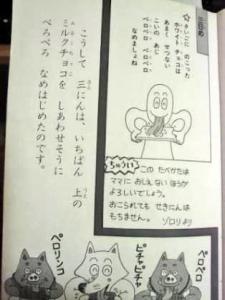 三日め
さいごに のこった
ホワイトチョコは
あまく せつない
こいの あじ
ペロペロ ペロペロ
なめましょね
ちゅうい
この たべかたは
ママに おしえない ほうが
よろしいでしょう。
おこられても せきにんは
もちません。
ゾロリより
こうして 三にんは、いちばん 上の
ミルクチョコを しあわせそうに
ぺろぺろ なめはじめたのです。
ペロペロ
ピチャピチャ
ペロリンコ